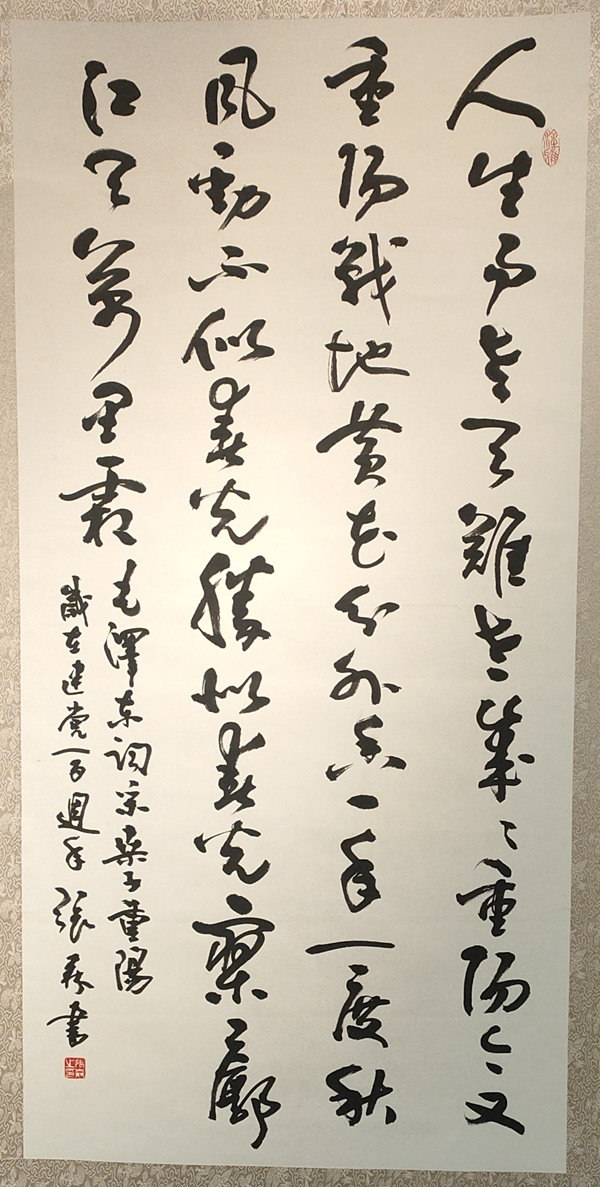 人生易老天難老歲〻重陽今又
重陽戰地黃花分外香一年一度秋
風勁不似春光勝似春光寥廓
江天萬里霜
毛澤東詞采桑子重陽
歲在建党一百週年 張 書